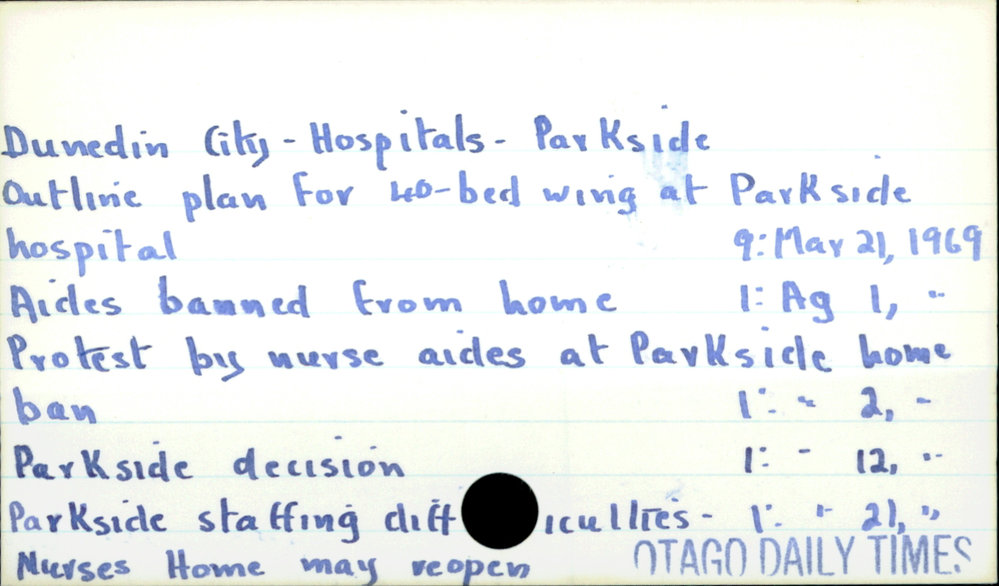 Dunedin City - Hospitals - Parkside
Outline plan for 40-bed wing at Parkside
hospital 9: Mar 21, 1969
Aides banned from home 1: Ag 1, "
Protest by nurse aides at Parkside home
ban 1: " 2, "
Parkside decision 1: " 12, "
Parkside staffing difficulties - 1: " 21, "
Nurses Home may reopen OTAGO DAILY TIMES